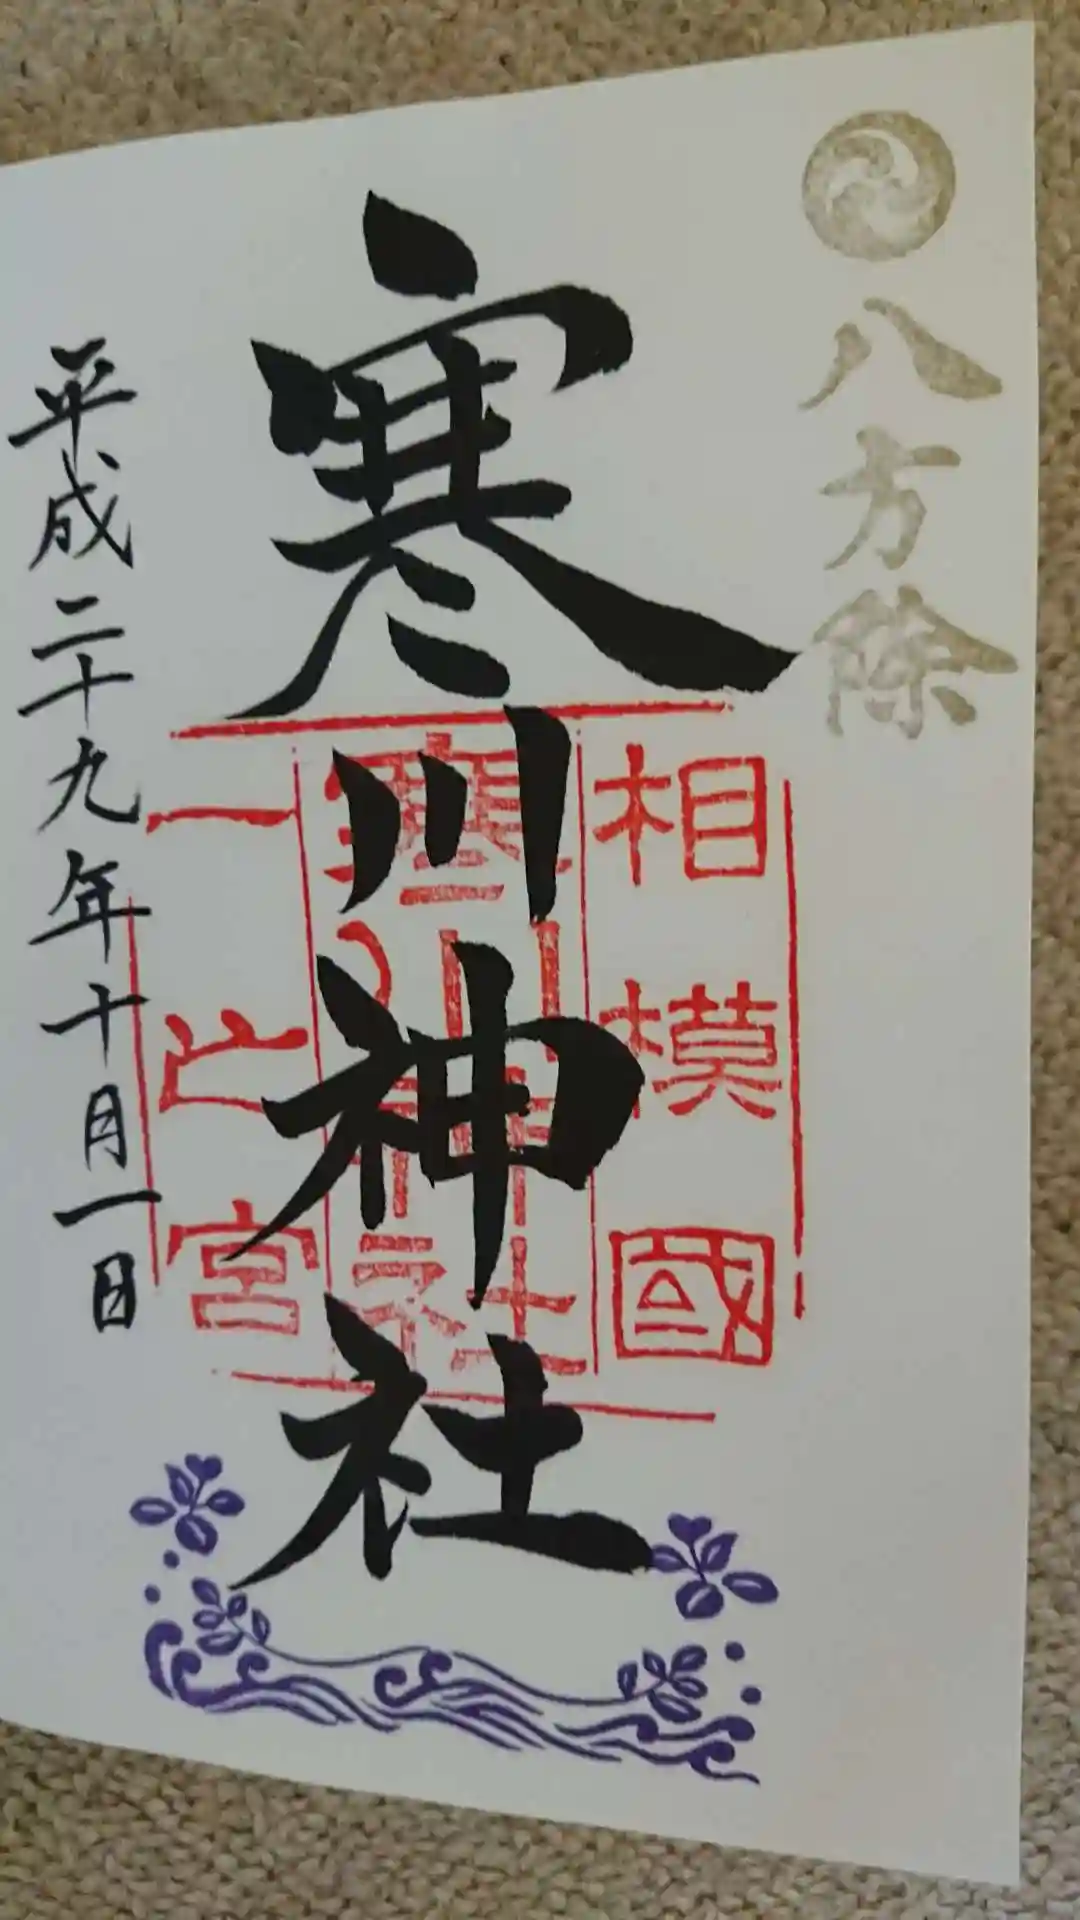 八方除
相模國
寒川神社
寒川神社
一之宮
平成二十九年十月一日